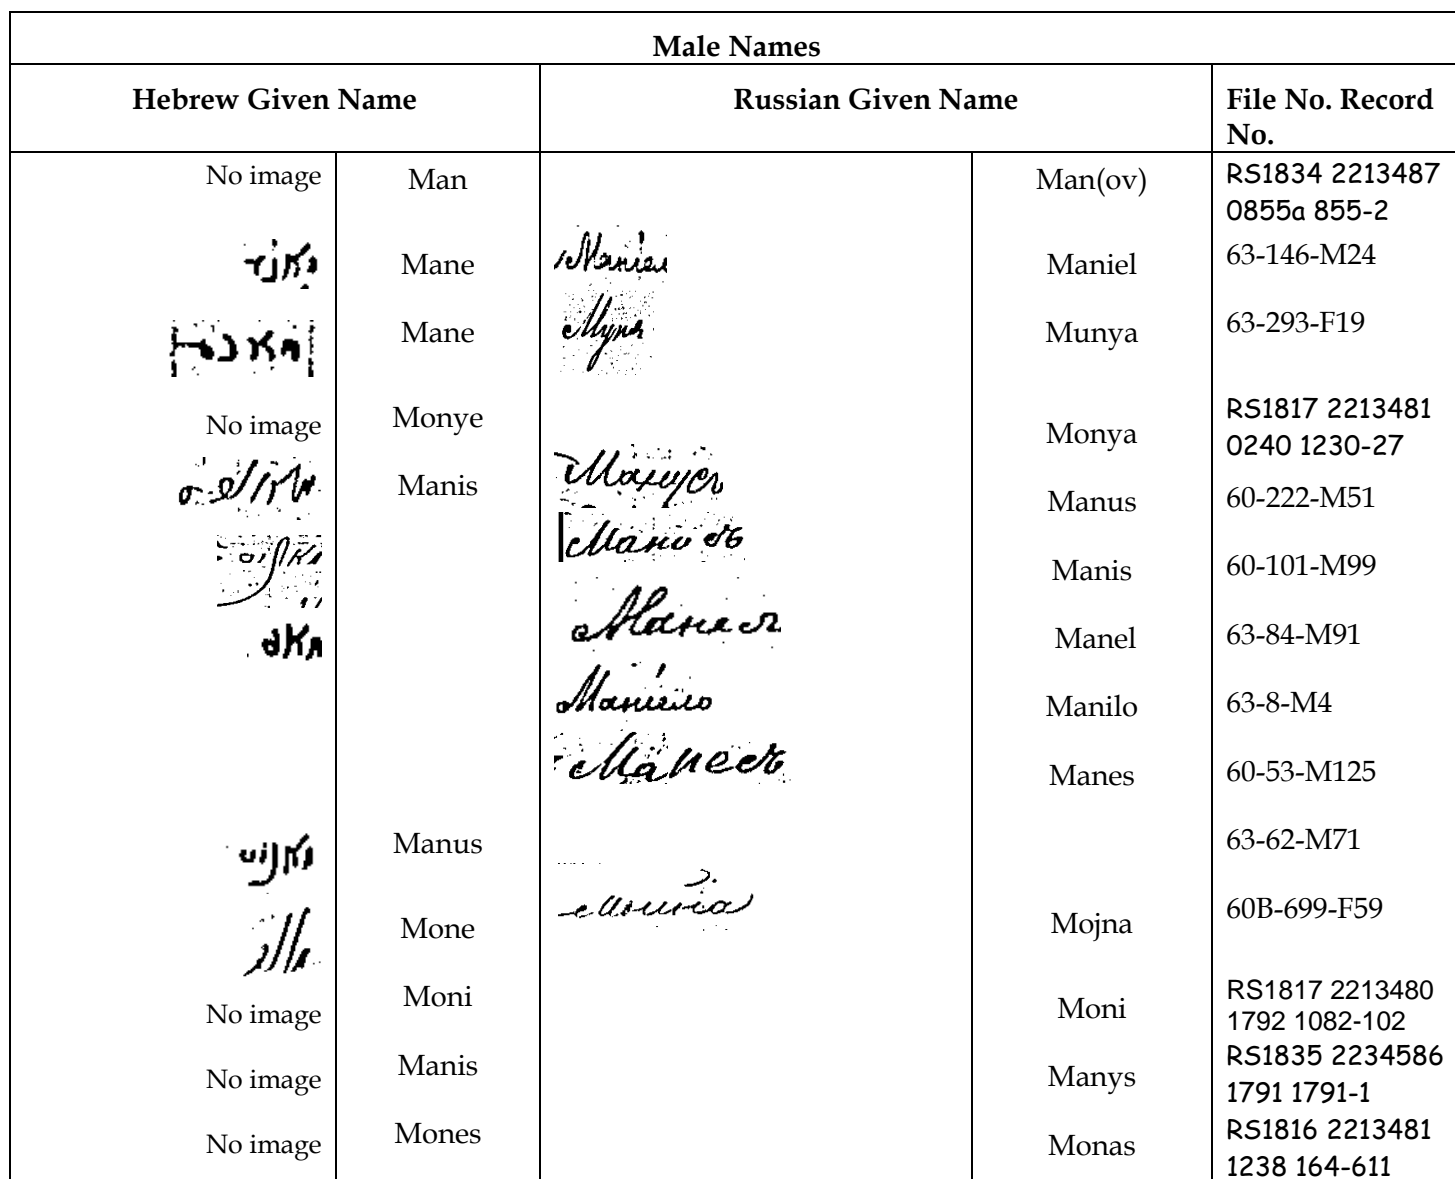 Male Names
Hebrew Given Name Russian Given Name File No. Record
No.
No image Man Man(ov) RS1834 2213487
0855a 855-2
Mane Маніел Maniel 63-146-M24
Mane Муня Munya 63-293-F19
No image Monye Monya RS1817 2213481
0240 1230-27
Manis Манусъ Manus 60-222-M51
Манисъ Manis 60-101-M99
Манел Manel 63-84-M91
Маніило Manilo 63-8-M4
Манесъ Manes 60-53-M125
מאניס Manus 63-62-M71
Mone Mojna 60B-699-F59
No image Moni Moni RS1817 2213480
1792 1082-102
No image Manis Manys RS1835 2234586
1791 1791-1
No image Mones Monas RS1816 2213481
1238 164-611